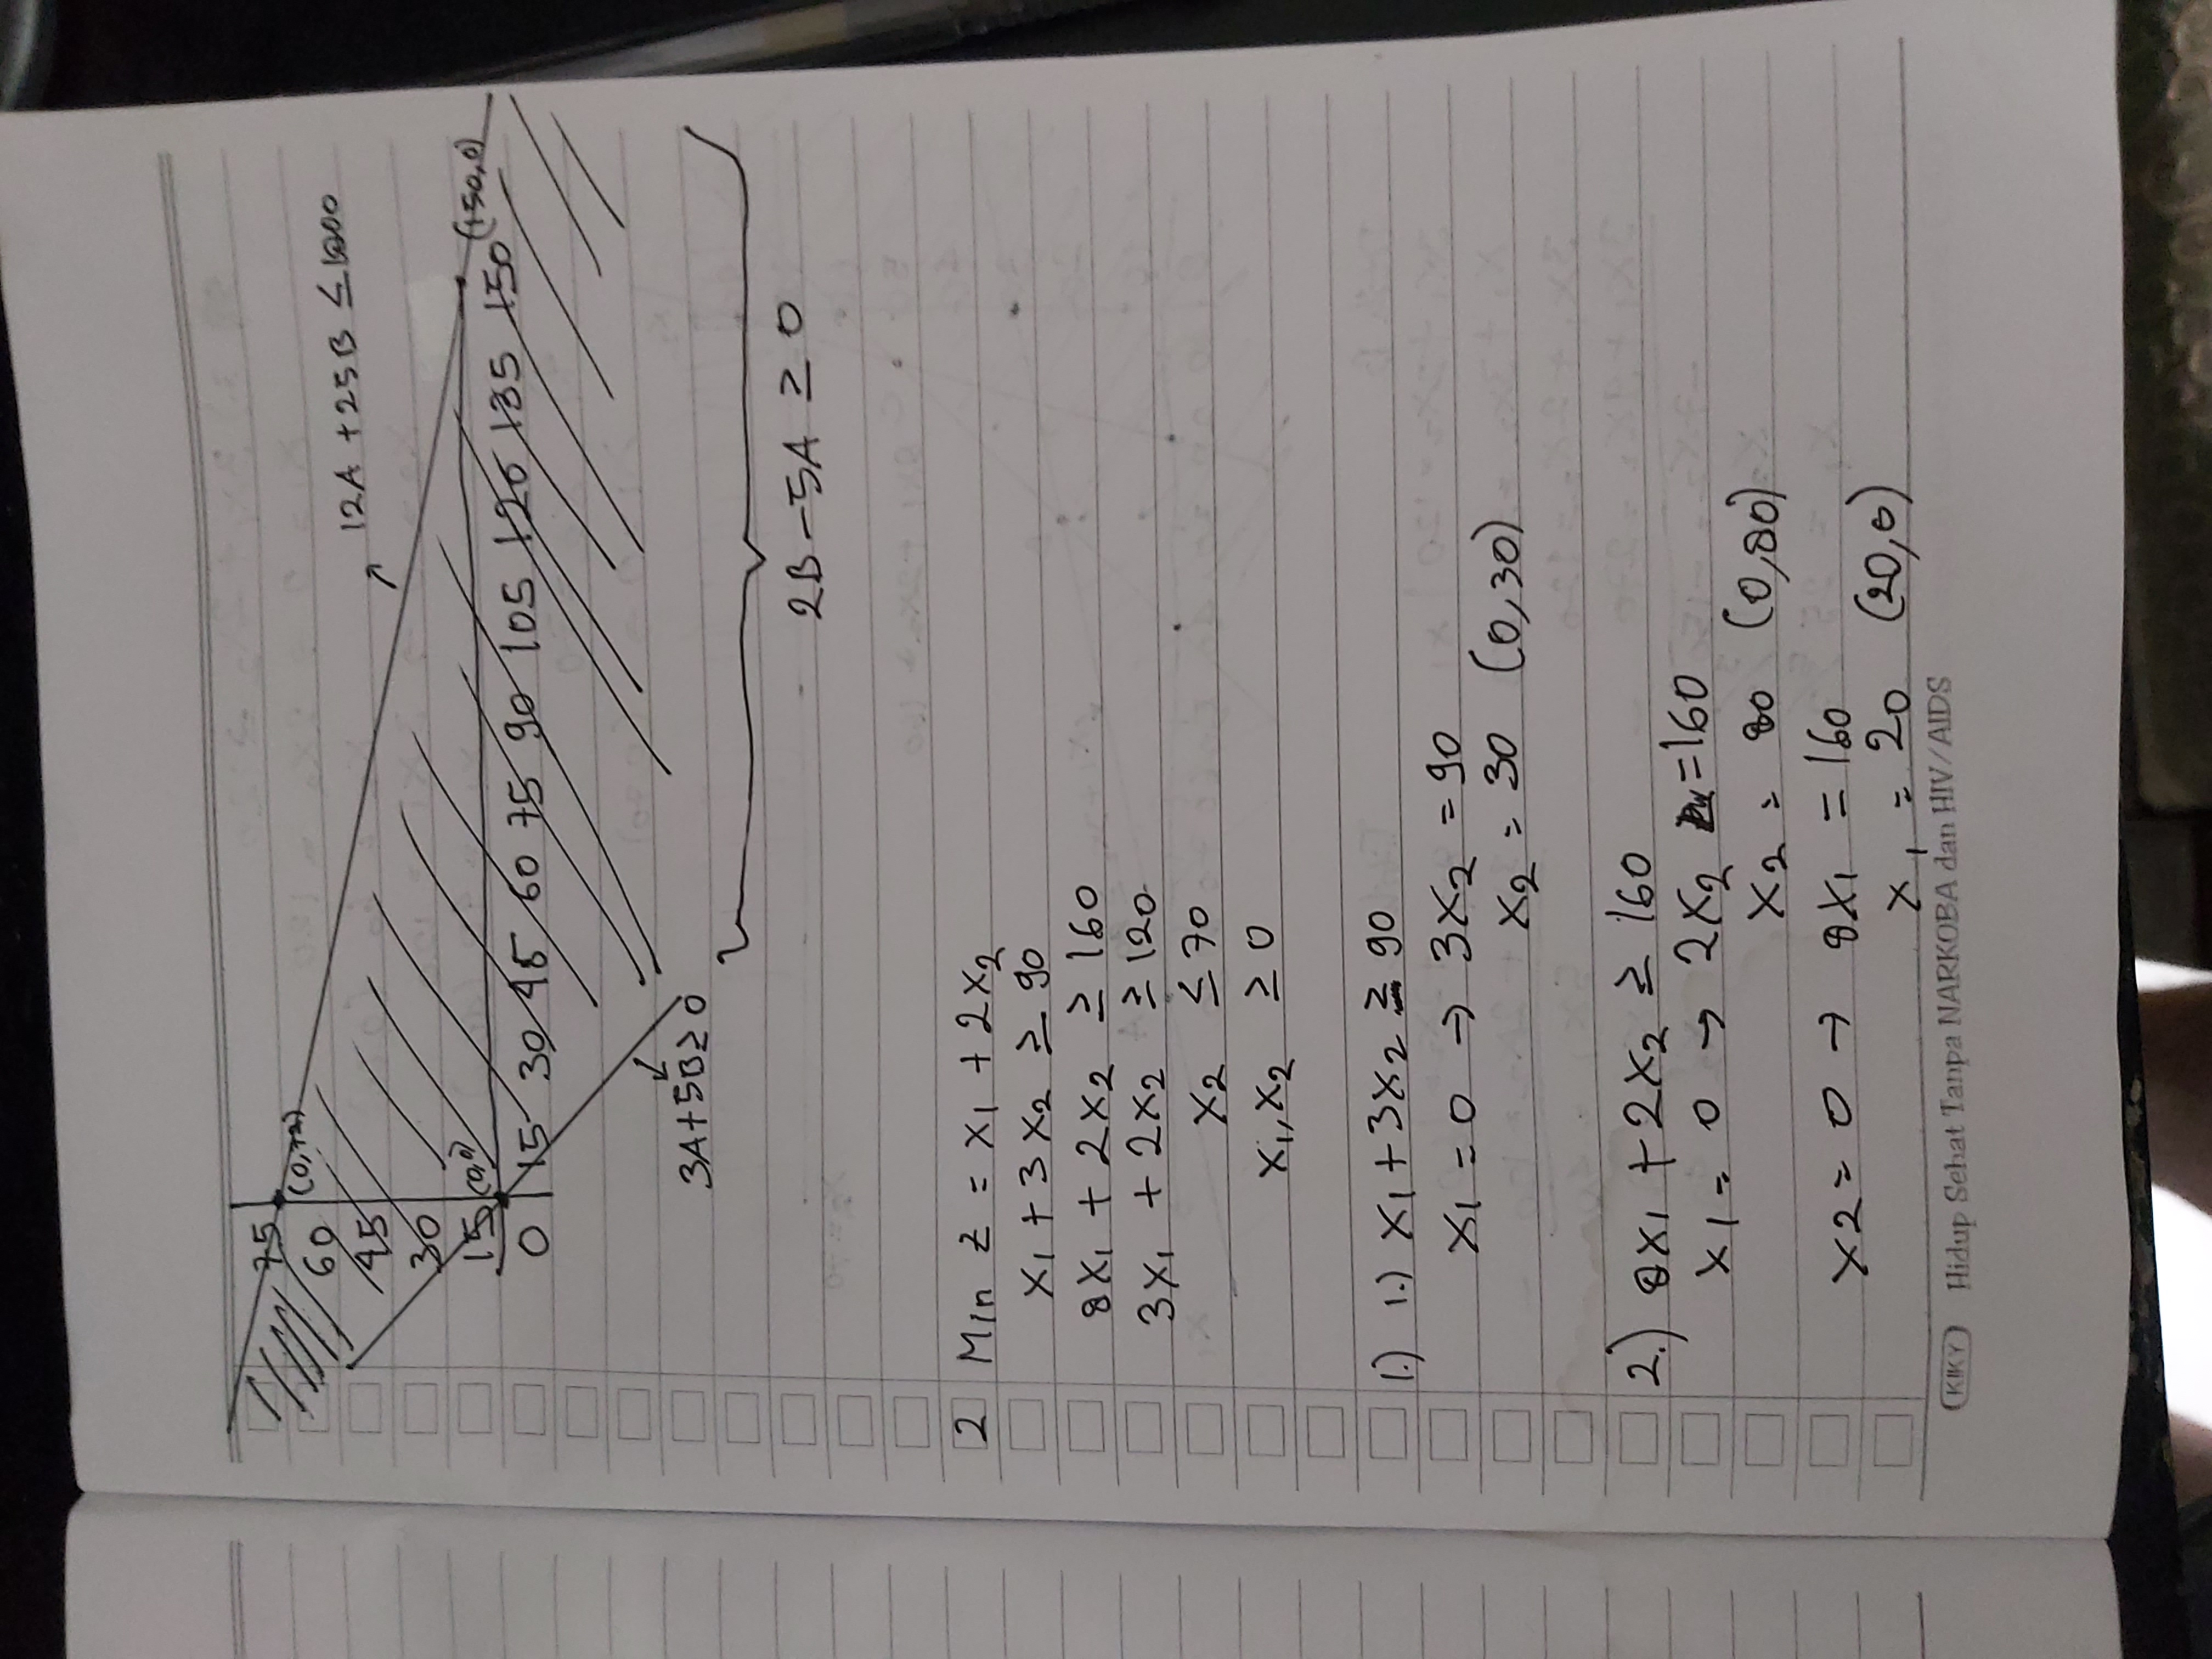 75
(0,72)
60
12A + 25B ≤ 1800
45
30
15 (0,0)
(150,0)
0 15 30 45 60 75 90 105 120 135 150
3A+5B ≥ 0
2B - 5A ≥ 0
2 Min Z = x1 + 2x2
x1 + 3x2 ≥ 90
8x1 + 2x2 ≥ 160
3x1 + 2x2 ≥ 120
x2 ≤ 70
x1, x2 ≥ 0
1.) 1.) x1 + 3x2 ≥ 90
x1 = 0 → 3x2 = 90
x2 = 30 (0,30)
2.) 8x1 + 2x2 ≥ 160
x1 = 0 → 2x2 = 160
x2 = 80 (0,80)
x2 = 0 → 8x1 = 160
x1 = 20 (20,0)
KIKY Hidup Sehat Tanpa NARKOBA dan HIV/AIDS